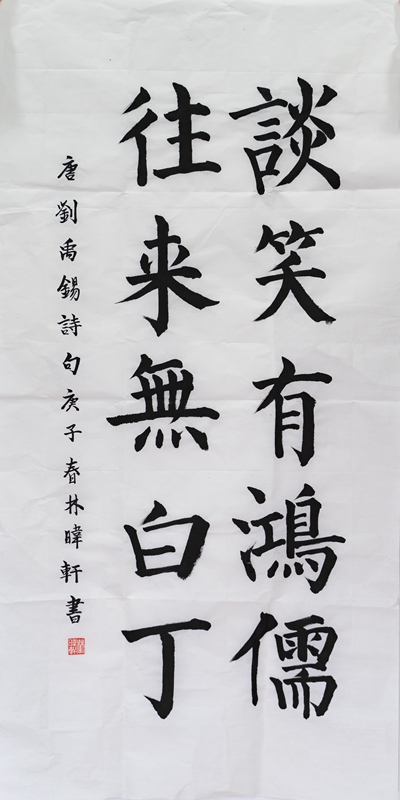 談笑有鴻儒
往来無白丁
唐劉禹錫詩句庚子春林暐軒書